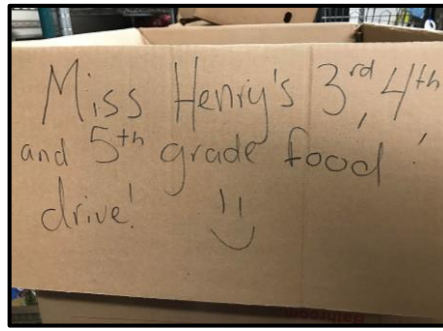 Miss Henry's 3rd, 4th
and 5th grade food
drive!
Bathroom